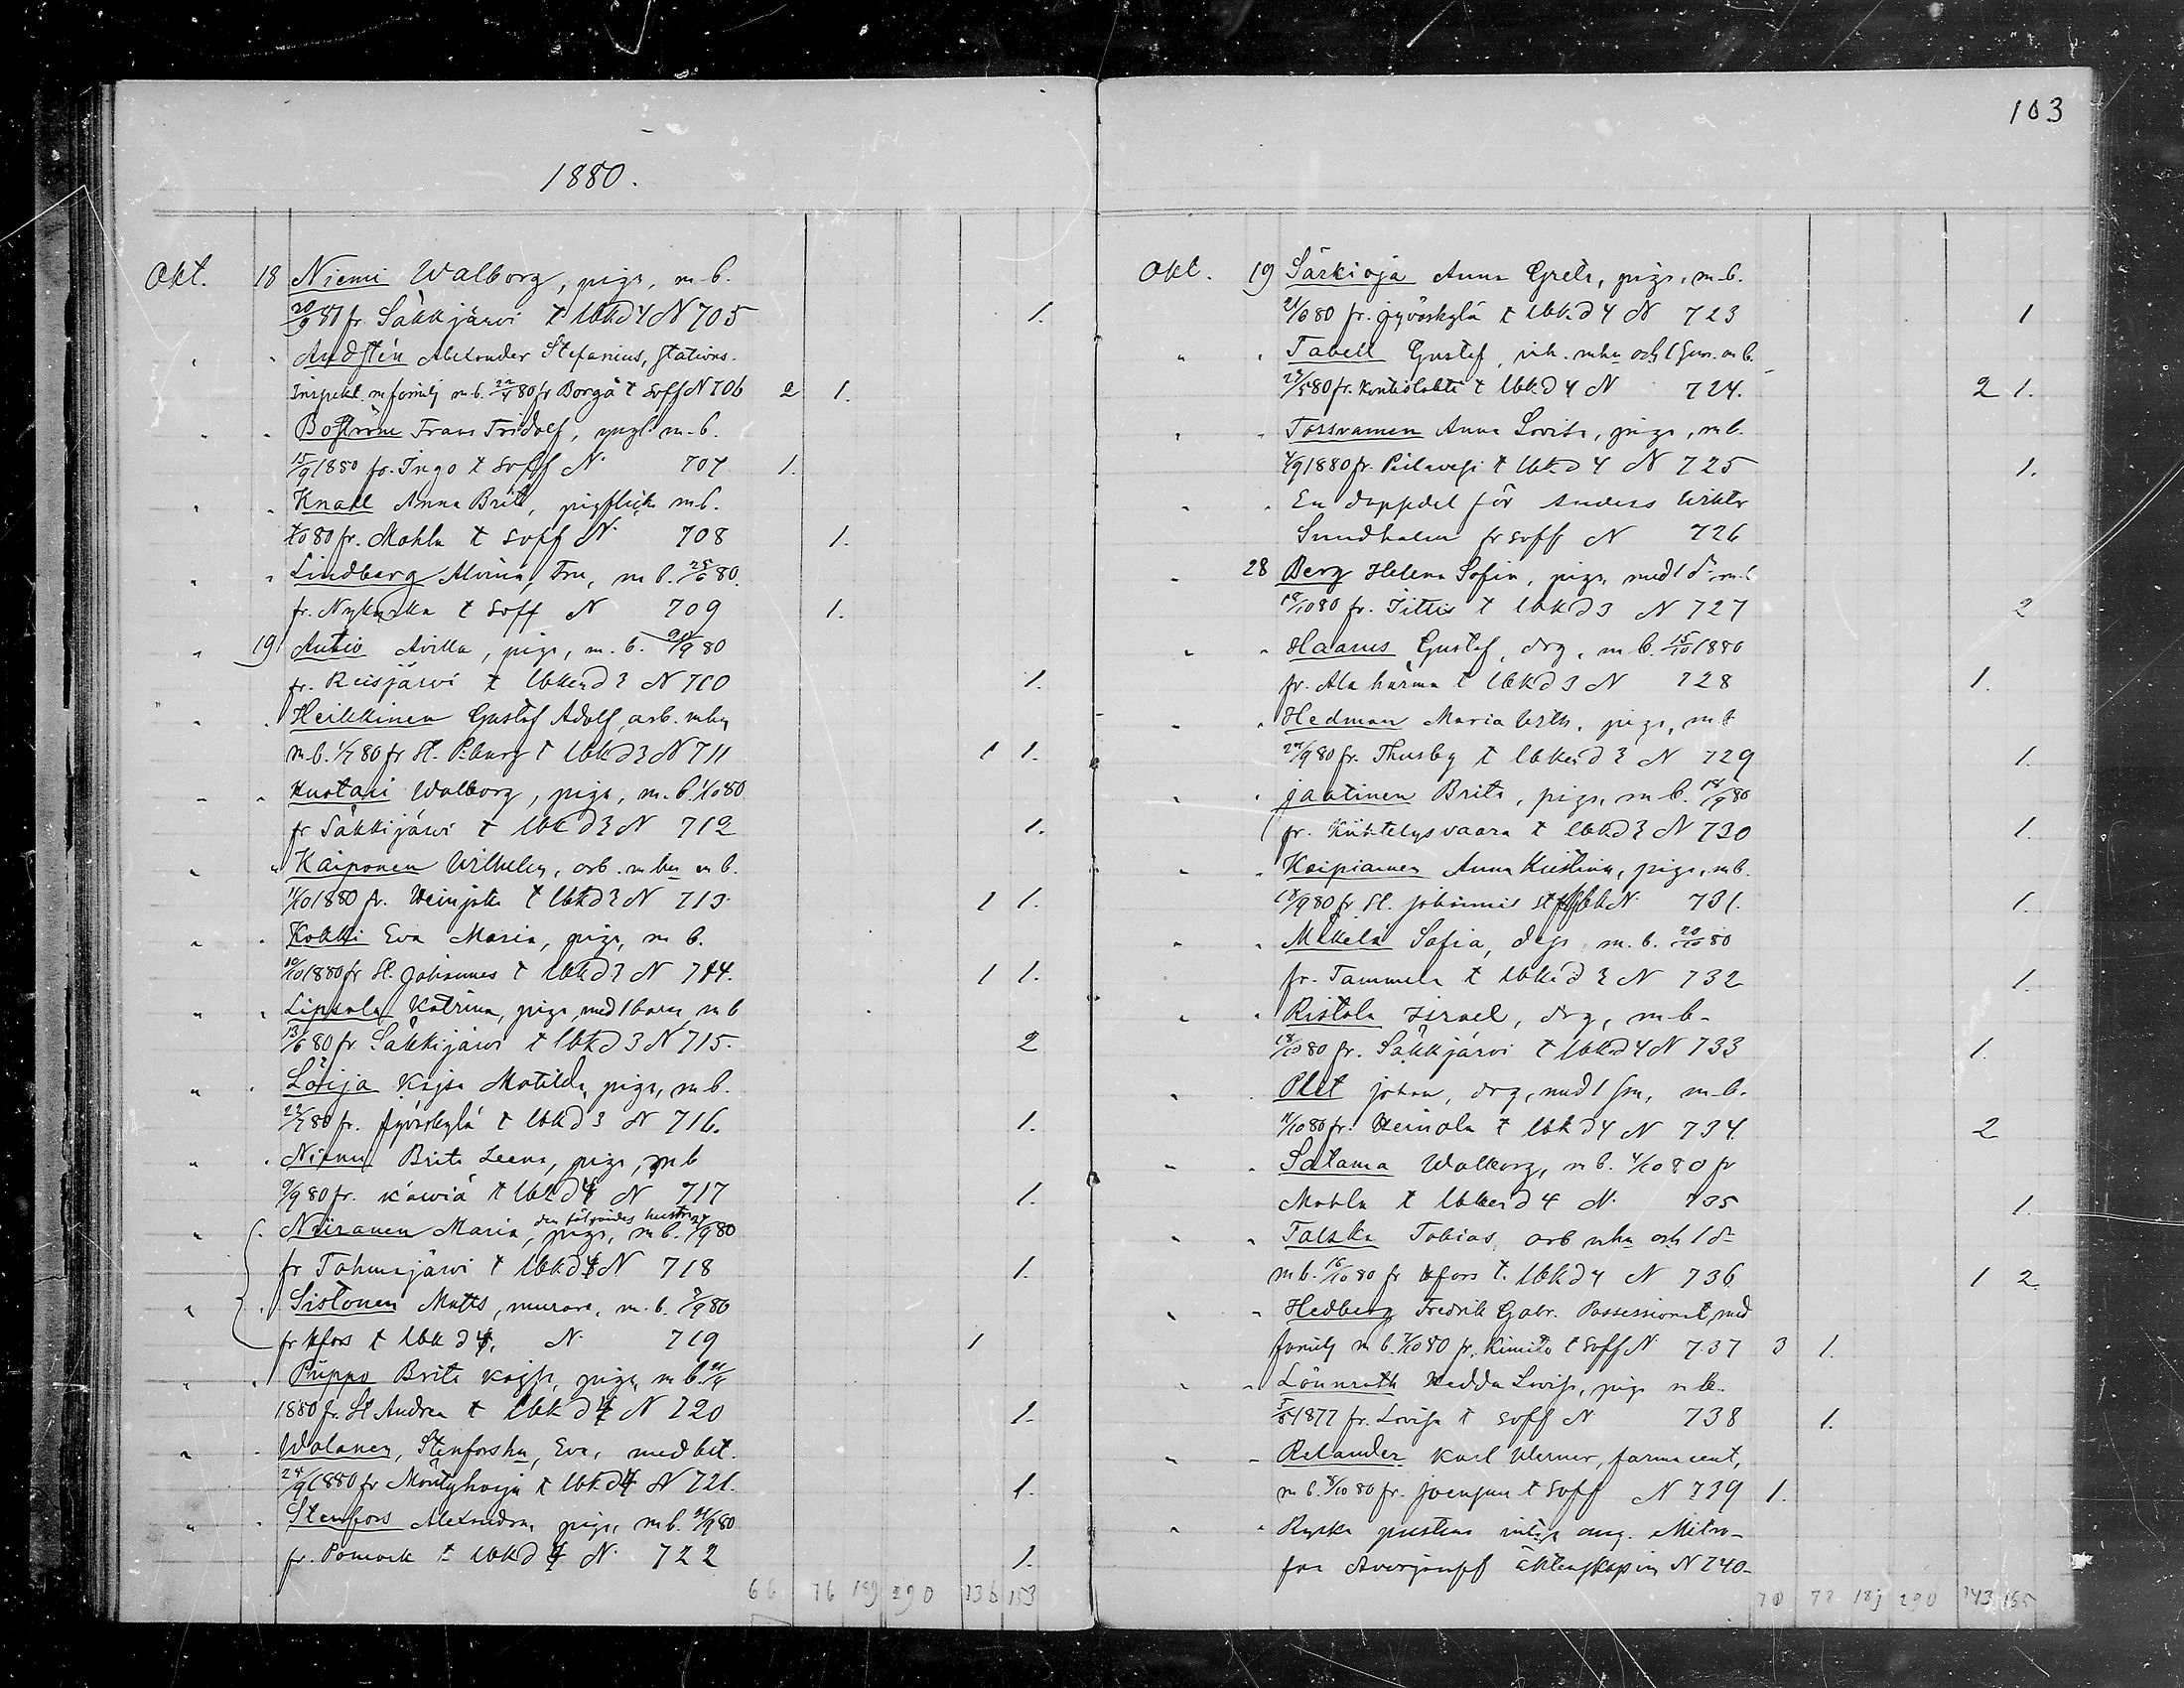 103
1880.
Okt. 18 Niemi Walborg, piga, m.b.
20/9 80 fr. Säkkjärvi t lbkd 4 N 705 1.
" " Andstén Alexander Stefanius, stations-
Inspekt. m familj m b. 22/4 80 fr Borgå t soff N 706 2 1.
" " Boström Frans Fridolf, yngl. m.b.
15/9 1880 fr. Ingo t soff N 707 1.
" " Knall Anna Brit, pigflicka m b.
1/10 80 fr. Mohla t soff N 708 1.
" " Lindberg Alvina, Fru, m b. 25/6 80.
fr. Nykyrka t soff N 709 1.
" 19 Autio Avilla, piga, m. b. 20/9 80
fr. Reisjärvi t lbken d 3 N 710 1.
" " Heikkinen Gustaf Adolf, arb. mhu
m b. 1/7 80 fr St. P.burg t lbkd 3 N 711 1 1.
" " Kuotari Walborg, piga, m. b. 1/10 80
fr Säkkijärvi t lbkd 3 N 712 1.
" " Kaiponen Wilhelm, arb. m hu m b.
11/10 1880 fr. Weinjoki t lbkd 3 N 713 1 1.
" " Kokki Eva Maria, piga, m b.
10/10 1880 fr St. Johannes t lbkd 3 N 714. 1 1.
" " Lipsala Katrina, piga, med 1 barn, m b
13/6 80 fr Säkkijärvi t lbkd 3 N 715. 2
" " Löija Kajsa Matilda, piga, m b.
22/7 80 fr. Jyväskylä t lbkd 3 N 716. 1.
" " Niemi Brita Leena, piga, m b
9/9 80 fr. Käwiä t lbkd 4 N 717 1.
" " Neiranen Maria, den följandes hustru piga, m b. /9 80
fr Tohmajärvi t lbkd 4 N 718 1.
" " Sistonen Matts, murare, m. b. 3/9 80
fr Hfors t lbk d 4, N 719 1
" " Puppo Brita Kajsa, piga, m b. 21/4
1880 fr. St Andrea t lbk d 4 N 720 1.
" " Wolanen, Stenforshu, Eva, med bet.
24/9 1880 fr Mäntyharju t lbkd 4 N 721. 1.
" " Stenfors Alexandra, piga, m b. 21/9 80
fr. Pomark t lbkd 4 N 722 1.
66 76 189 290 136 153
Okt. 19 Särkioja Anna Greta, piga, m b.
21/6 80 fr. Jyväskylä t lbkd 4 N 723 1
" " Tabell Gustaf, inh. mhu och 1 son. m b.
29/5 80 fr. Kontiolahti t lbkd 4 N 724. 2 1.
" " Torsvanen Anna Lovisa, piga, m b.
4/9 1880 fr. Pielavesi t lbkd 4 N 725 1.
" " En doppdel för Anders Wiktor
Sundholm fr soff N 726
" 28 Berg Helena Sofia, piga, med 1 dr. m. b
18/10 80 fr. Iittis t lbkd 3 N 727 2
" " Haarus Gustaf, drg, m b. 15/10 1880
fr. Ala härmä t lbkd 3 N 728 1.
" " Hedman Maria Wilh. piga, m b
27/9 80 fr. Thusby t lbken d 3 N 729 1.
" " Jaatinen Brita, piga, m b. 18/9 80
fr. Kiihtelysvaara t lbkd 3 N 730 1.
" " Kaipiainen Anna Kristina, piga, m b.
14/9 80 fr. St. Johannis st lbk N 731. 1.
" " Mäkelä Sofia, deja, m. b. 20/10 80
fr. Tammela t lbkd 3 N 732 1.
" " Ristola Israel, drg, m b-
18/10 80 fr. Säkkjärvi t lbkd 4 N 733 1.
" " Plit Johan, drg, med 1 son, m b.
11/10 80 fr. Heinola t lbk d 4 N 734. 2
" " Satama Walborg, m b. 4/10 80 fr
Mohla t lbken d 4 N 735 1.
" " Talska Tobias, arb mhu och 1 dr
m b. 16/10 80 fr Hfors t. lbkd 4 N 736 1 2.
" " Hedberg Fredrik Gabr. Possessionat, med
familj m b. 7/10 80 fr. Kimito t soff N 737 3 1.
" " Lönnroth Hedda Lovisa, piga m b.
5/8 1877 fr. Lovisa t soff N 738 1.
" " Relander Karl Werner, farmaceut,
m b. 8/10 80 fr. Joensuu t soff N 739 1.
" " Ryska prestens intyg ang. Mitro-
fan Averjanoff äktenskap in N 740-
70 78 189 290 143 165